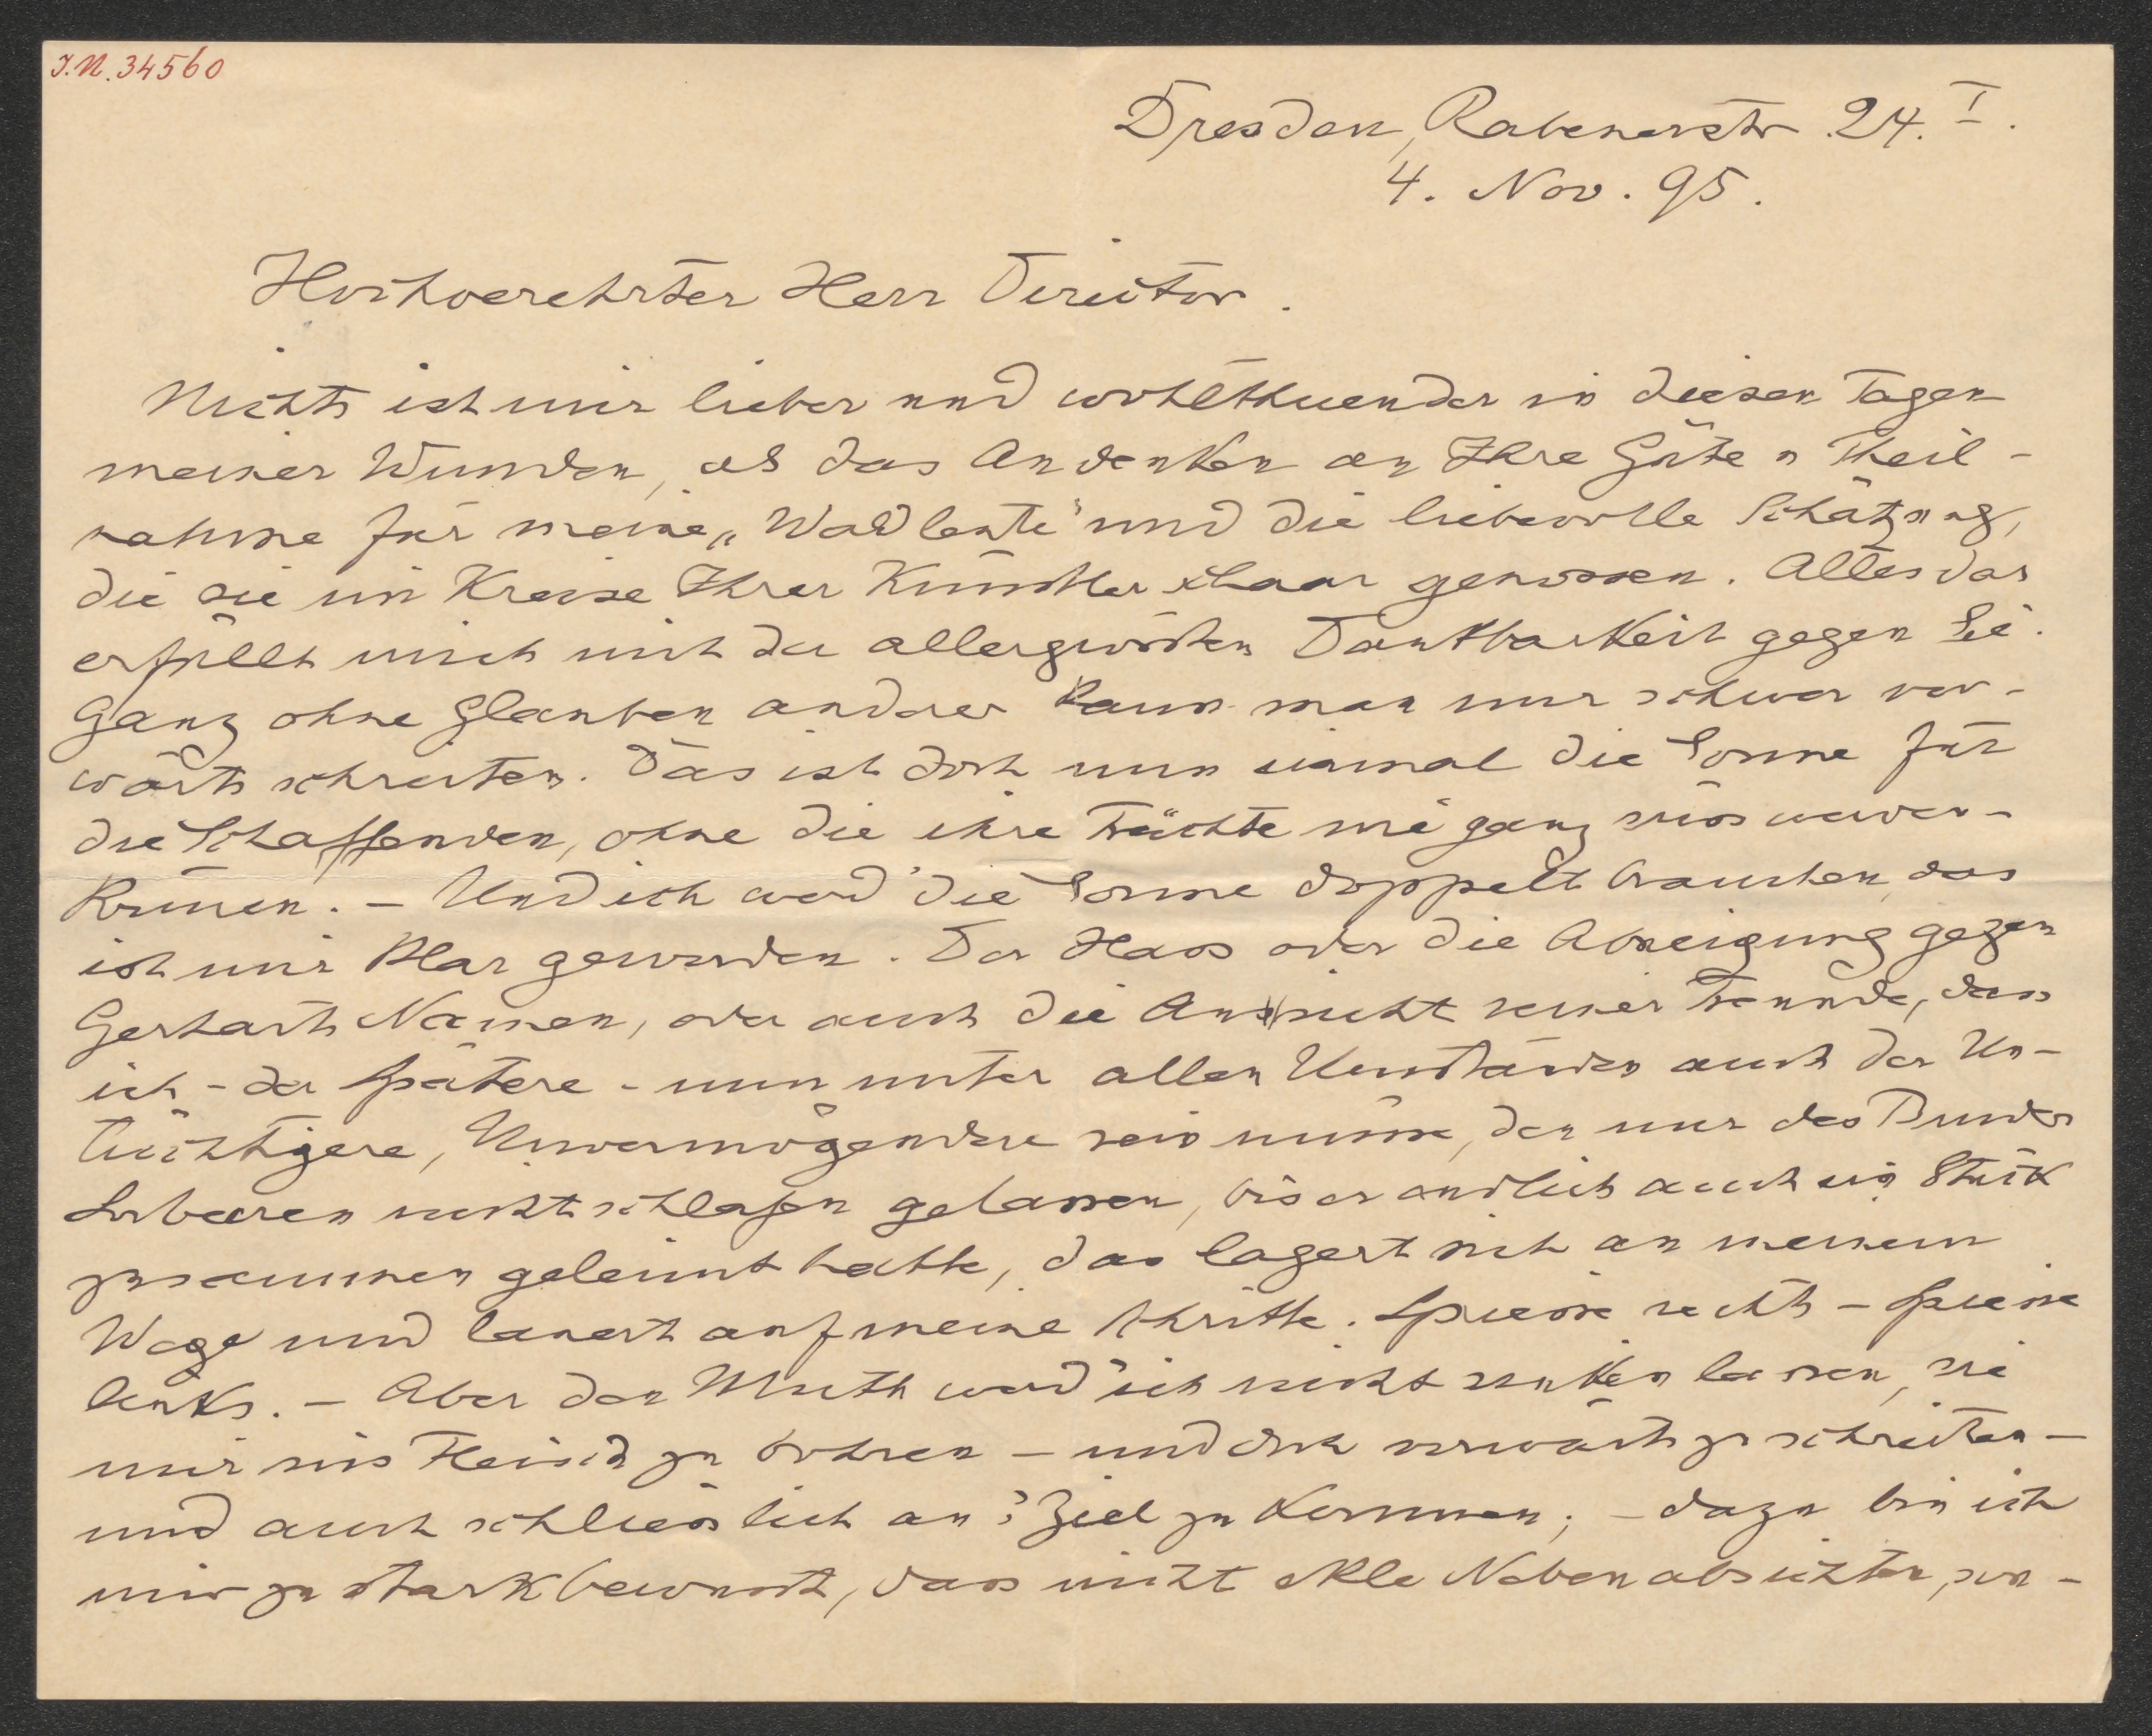 J.N. 34560
Dresden, Rabenerstr 24. I.
4. Nov. 95.
Hochverehrter Herr Director.
Nichts ist mir lieber und wohlthuender in diesen Tagen
meiner Wunden, als das Andenken an Ihre Güte u Theil-
nahme für meine „Waldleute" und die liebevolle Schätzung,
die sie im Kreise Ihrer Künstlerschaar genossen. Alles das
erfüllt mich mit der allergrössten Dankbarkeit gegen Sie.
Ganz ohne Glauben anderer kann man nur schwer vor-
wärts schreiten. Das ist doch nun einmal die Sonne für
die Schaffenden, ohne die ihre Früchte nie ganz süss werden
können. – Und ich werd' die Sonne doppelt brauchen, das
ist mir klar geworden. Der Hass oder die Abneigung gegen
Gerharts Namen, oder auch die Ansicht seiner Freunde, dass
ich – der Spätere – nun unter allen Umständen auch der Un-
tüchtigere, Unvermögendere sein müsse, den nur des Bruders
Lorbeeren nicht schlafen gelassen, bis er endlich auch ein Stück
zusammen geleimt hatte, das lagert sich an meinem
Wege und lauert auf meine Schritte. Spiesse rechts – Spiesse
links. – Aber den Muth werd' ich nicht sinken lassen, sie
mir ins Fleisch zu bohren – und doch vorwärts zu schreiten –
und auch schliesslich an's Ziel zu kommen; – dazu bin ich
mir zu stark bewusst, dass nicht ekle Nebenabsichten, son-